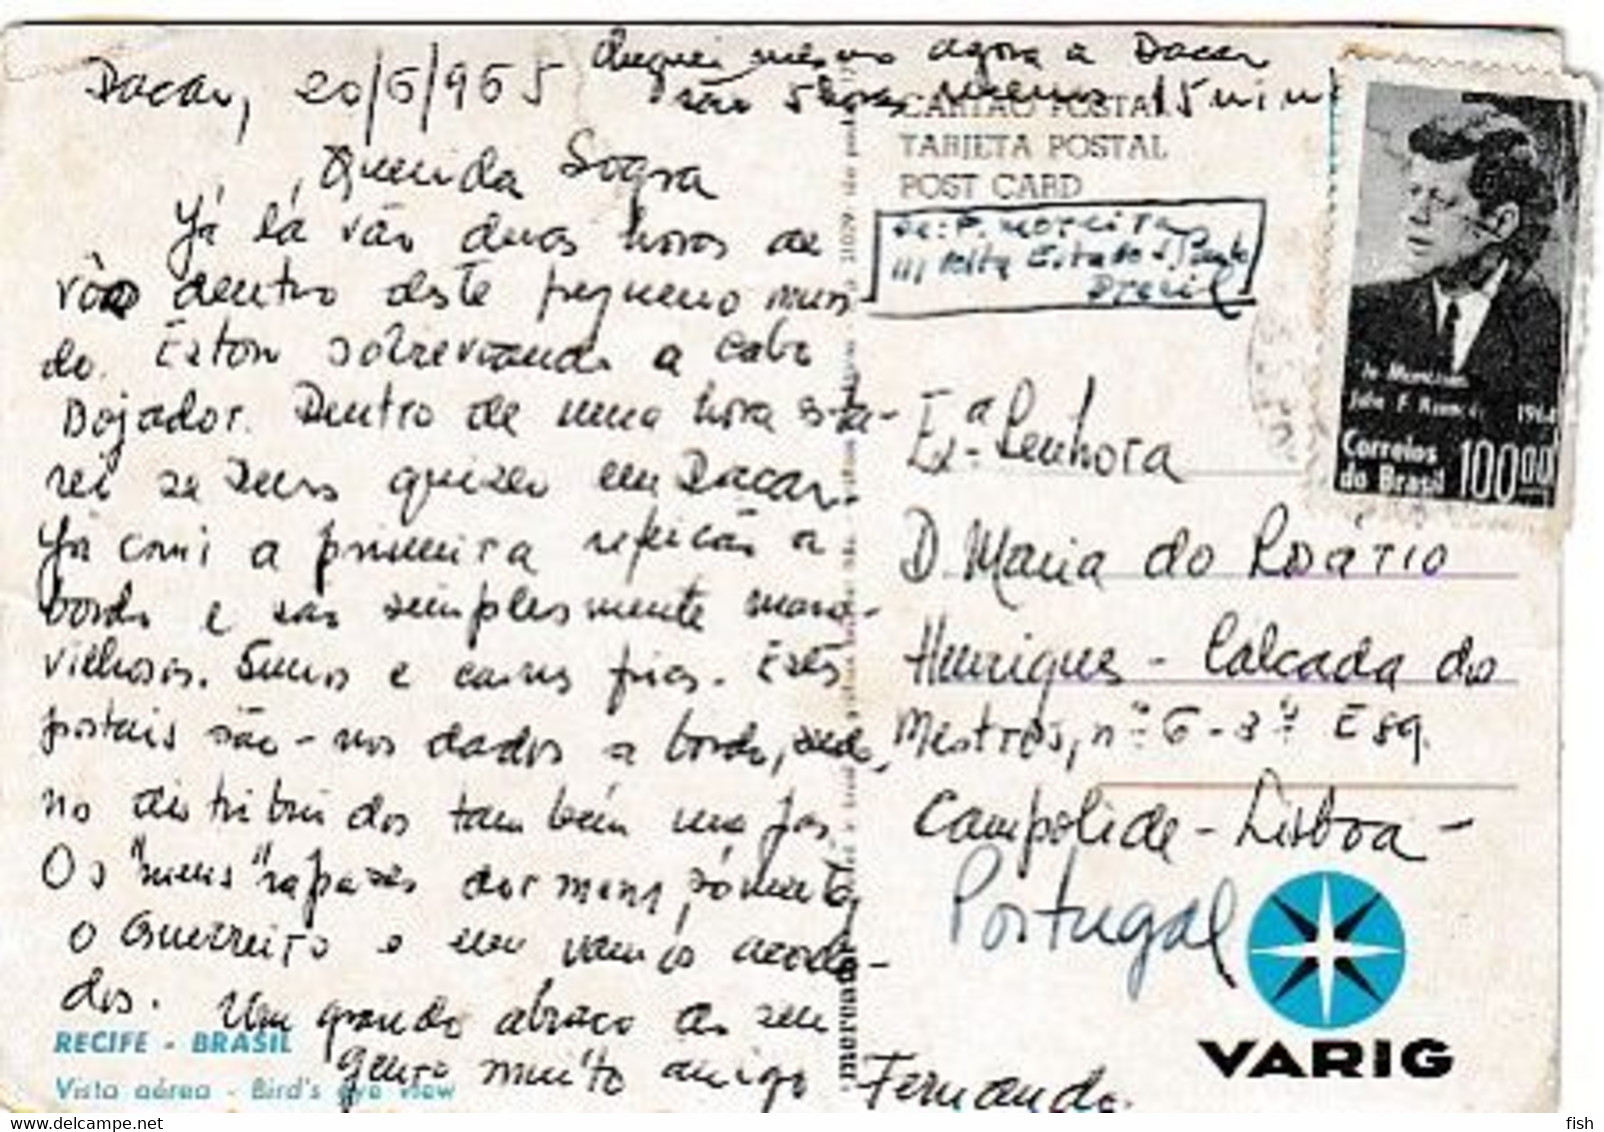 Dacar, 20/6/965
Cheguei mesmo agora a Dacar
são 5 horas menos 15 min
CARTÃO POSTAL
TARJETA POSTAL
POST CARD
Querida Sogra
Já lá vão duas horas de
vôo dentro deste pequeno mun
do. Estou sobrevoando a cabo
Bojador. Dentro de uma hora esta-
rei se Deus quizer em Dacar.
Já comi a primeira refeição a
bordo e são simplesmente mara-
vilhosos. Sumos e carnes frias. Estes
postais são-nos dados a bordo, sen
do distribuidos também
Os "meus" rapazes dormem, sómente
o Guerreiro e eu vamos acorda-
dos. Um grande abraço do seu
genro muito amigo Fernando.
RECIFE - BRASIL
Vista aérea - Bird's eye view
Moreira
Estado S. Paulo
Brasil
In Memoriam
John F. Kennedy 1964
Correios
do Brasil 100,00
Exª. Senhora
D. Maria do Rosário
Henriques - Calcada dos
Mestres, nº 6 - 3º Esq.
Campolide - Lisboa -
Portugal
VARIG
delcampe.net
fish